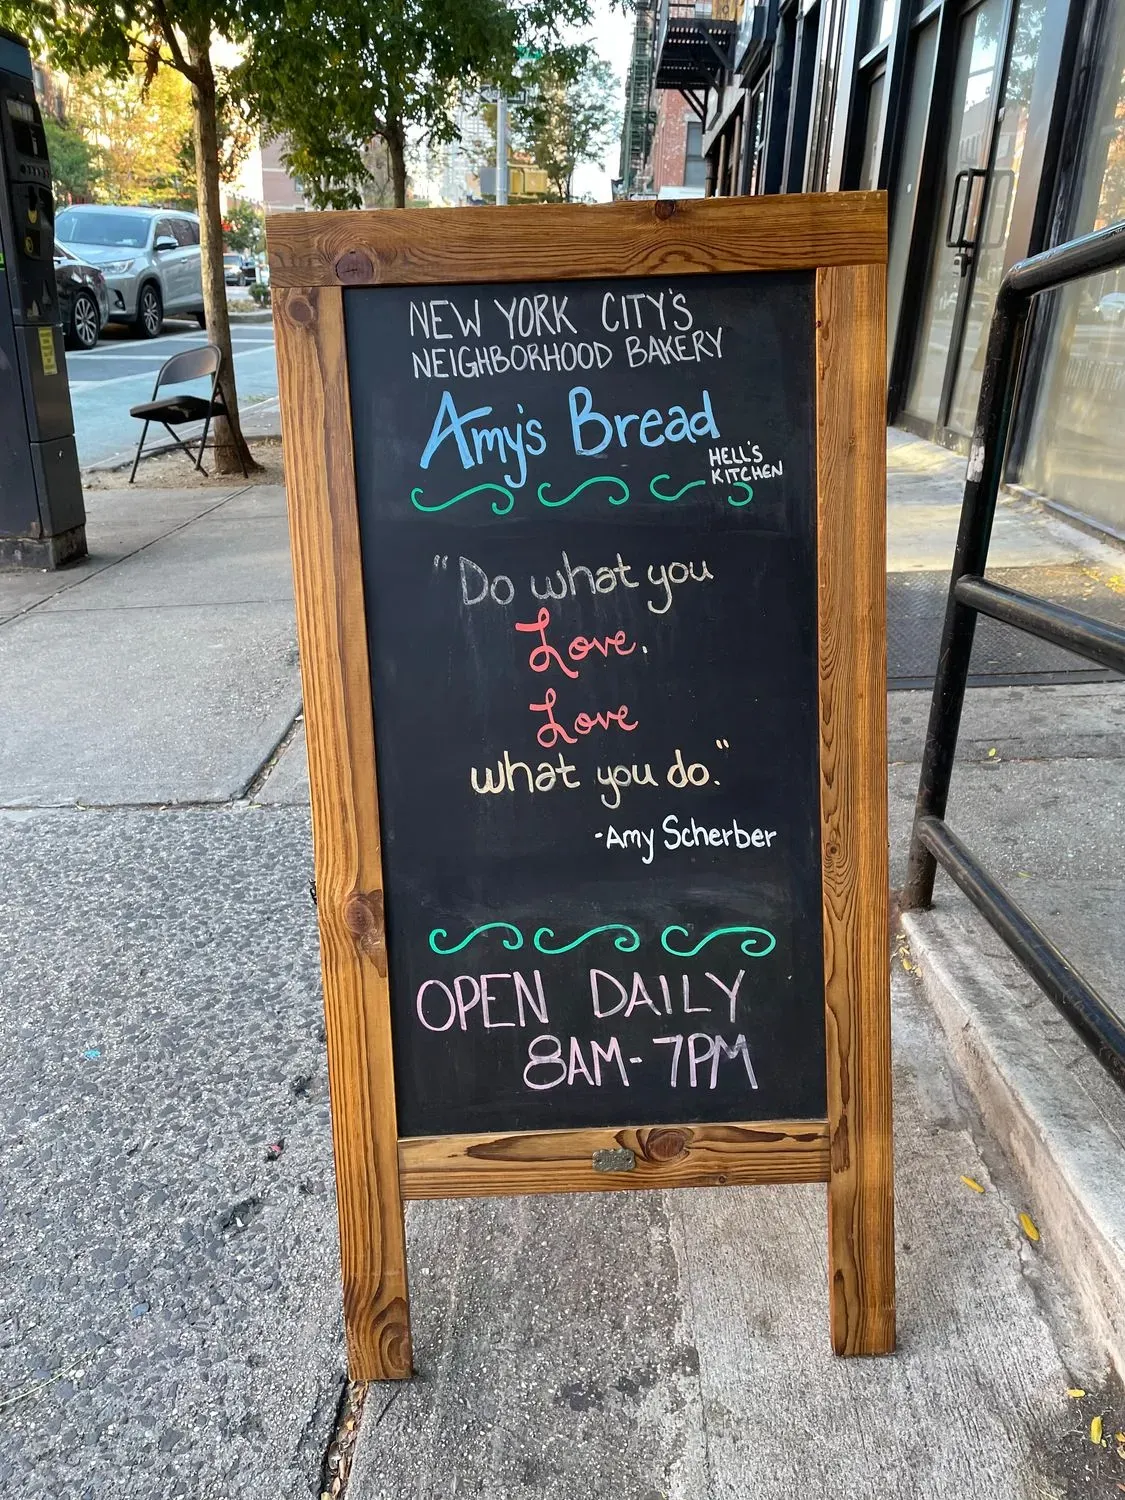 NEW YORK CITY'S
NEIGHBORHOOD BAKERY
Amy's Bread
HELL'S
KITCHEN
"Do what you
Love.
Love
what you do."
-Amy Scherber
OPEN DAILY
8AM-7PM